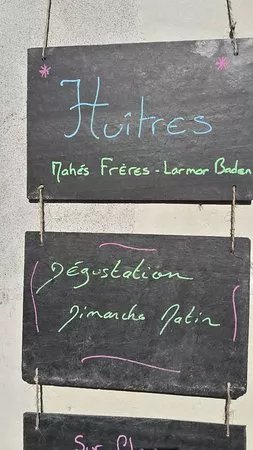 Huîtres
Mahés Frères - Larmor Baden
Dégustation
Dimanche Matin
Sur